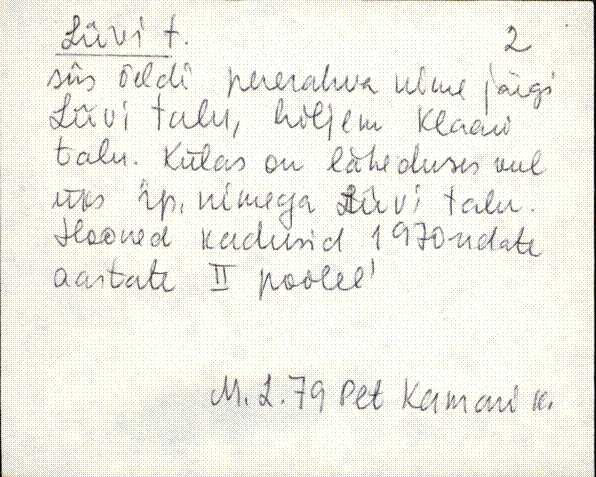 Liivi t. 2
siis öeldi pererahva nime järgi
Liivi talu, hiljem Klaani
talu. Külas on läheduses veel
üks äp. nimega Liivi talu.
Hooned kadusid 1970ndate
aastate II poolel
M. L. 79 Pet Kamari k.